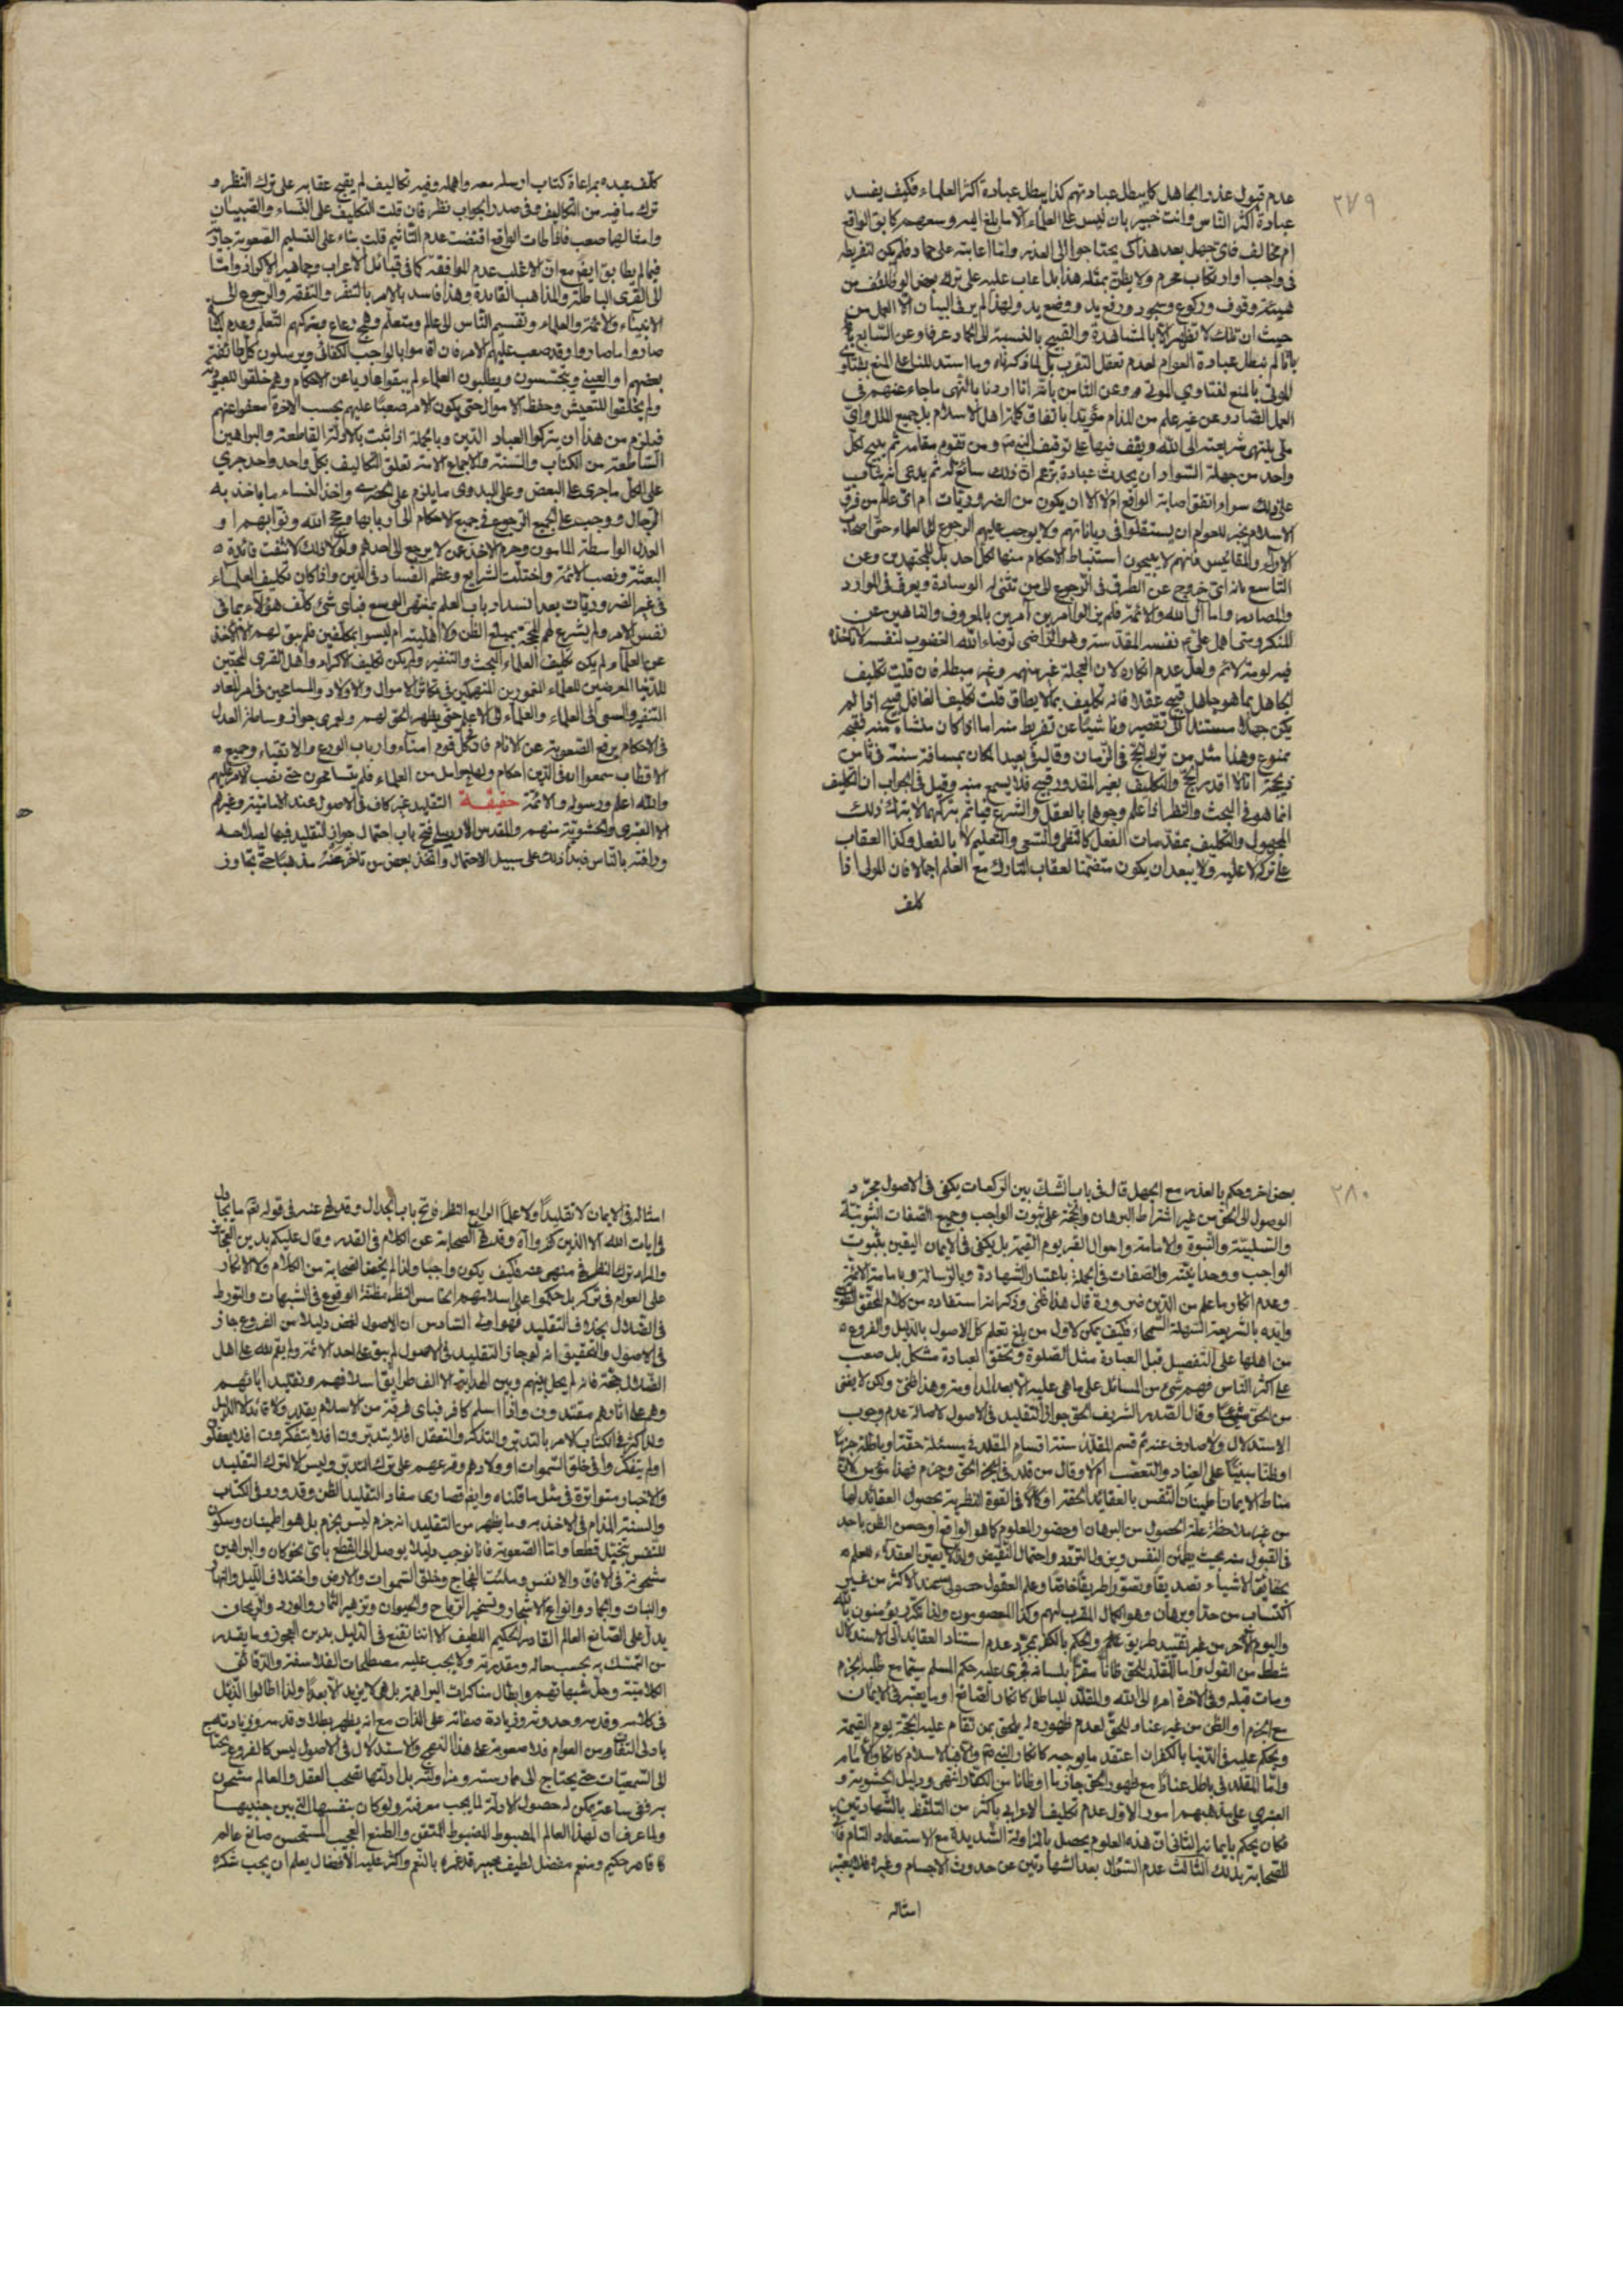 ٢٧٩
عدم قبول عذر الجاهل كما يبطل عبادتهم كذا يبطل عبادة اكثر العلماء فكيف يفسد
عبادة اكثر الناس وانت خبير بان ليس على العلماء الا ما بلغ اليه وسعهم طابق الواقع
ام خالف فاى جهل بعد هذا كى يحتاجوا الى العذر واما اعابته على حماد فلم يكن لتفريطه
فى واجب او ارتكاب محرم ولا يظن بمثله هذا بل اعاب عليه على ترك بعض الوظائف من
هيئة وقوف وركوع وسجود ورفع يد ووضع يد ولهذا لم ير فى البيان الا العمل من
حيث ان تلك لا تظهر الا بالمشاهدة والقبيح بالنسبة الى الحماد عرفا وعن السابع
بانا لم نبطل عبادة العوام لعدم تعقل التقرب بل لما ذكرناه وما استدللنا على المنع
للموتى بالمنع لفتاوي الموتى وعن الثامن بانا اردنا بالنهى ما جاء عنهم فى
العمل الصادر عن غير علم من الذام مؤيدا باتفاق كلمة اهل الاسلام بل جميع الملل واى
ملى ينتهى شريعته الى الله ويقف فيها على توقيف النبى ومن تقوم مقامه ثم يبيح لكل
واحد من جهلة السواد ان يحدث عبادة بزعم ان ذلك سائغ له ثم يدعى انه يثاب
على ذلك سواء اتفق اصابة الواقع ام لا الا ان يكون من الضروريات ام اى عالم من فرق
الاسلام يجيز للعوام ان يستقلوا فى دياناتهم ولا يوجب عليهم الرجوع الى العلماء حتى اصحاب
الاراء والمقائيس فانهم لا يبيحون استنباط الاحكام منها لكل احد بل للمجتهدين وعن
التاسع بانه اى خروج عن الطرق فى الرجوع الى من تثنى له الوسادة ويعرف فى الموارد
والمصادر واما آل الله والائمة فلم يزالوا آمرين بالمعروف والناهين عن
المنكر
فيه لومة لائم ولعل عدم انكاره لان الجملة غير منهية وغير مبطلة فان قلت تكليف
الجاهل بما هو جاهل قبيح عقلا فانه تكليف بما لا يطاق قلت تكليف الغافل قبيح اذا لم
يكن جهله مستندا الى تقصير وناشيئا عن تفريط منه اما اذا كان منشاه منه فقبحه
ممنوع وهذا مثل من ترك الحج فى الزمان وقال فى بعيد المكان بمسافة سنة فى ثامن
ذيحجة انا لا اقدر الحج والتكليف بغير المقدور قبيح فلا يسمع منه وقيل فى الجواب ان التكليف
انما هو فى البحث والنظر اذا علم وجوبها بالعقل والشرع فياثم بتركهما لا بترك ذلك
المجهول والتكليف بمقدمات الفعل كالنظر والسعى والتعليم لا بالفعل وكذا العقاب
على تركه لا عليه ولا يبعد ان يكون متضمنا لعقاب التارك مع العلم اجمالا فان المولى اذا
كلف
كلف عبده بمراعاة كتاب ارسله معه واهمله وفيه تكاليف لم يقبح عقابه على ترك النظر و
ترك ما فيه من التكاليف وفى صدر الجواب نظر فان قلت التكليف على النساء والصبيان
وامثالهما صعب فاذا طابق الواقع اقتضت عدم التاثيم قلت بناء على التسليم الصعوبة جار
فيما لم يطابق ايض مع ان الاغلب عدم الموافقة كما فى قبائل الاعراب وجماهير الاكراد واما
الى القرى الباطلة والمذاهب الفاسدة وهذا فاسد بالامر بالتنفر والتفقه والرجوع الى
الانبياء والائمة والعلماء وتقسيم الناس الى عالم ومتعلم وهمج رعاع وبتركهم التعلم وعدم
صاروا ما صاروا وقد صعب عليهم الامر فان اقاموا بالواجب الكفائى ويرسلون كل طائفة
بعضهم او العينى ويتجسسون ويطلبون العلماء لم يبقوا عاريا عن الاحكام وهم خلقوا للعبودية
ولم يخلقوا للتعيش وحفظ الاموال حتى يكون الامر صعبا عليهم بحسب الاخرة معفوا عنهم
فيلزم من هذا ان يتركوا العباد الدين وبالجملة اذا ثبت بالادلة القاطعة والبراهين
الساطعة من الكتاب والسنة والاجماع الامة تعلق التكاليف بكل واحد واحد جرى
على الكل ما جرى على البعض وعلى البدوى ما يلزم على الحضرى واخذ النساء ما ياخذ به
الرجال ووجب على الجميع الرجوع فى جميع الاحكام الى اربابها وحج الله ونوابهم او
العدل الواسطة المامون وحرم الاخذ عن لا يرجع الى احدهم ولولا ذلك لانتفت فائدة
البعثة ونصب الائمة واختلت الشرايع وعظم الفساد فى الدين واذا كان تكليف العلماء
فى غير الضروريات بعد انسداد باب العلم بمنتهى الوسع فباى شئ كلف هؤلاء بما فى
نفس الامر ولم يشرع لهم الحجة بمبلغ الظن ولا اهلية ام ليسوا بمكلفين فلم يبق لهم الا الاخذ
عن العلماء ولم يكن تكليف العلماء البحث والتنفير ولم يكن تكليف الاكراد واهل القرى المحبين
للدنيا المعرضين للعلماء المغمورين المنهمكين فى تكاثر الاموال والاولاد والمسامحين فى امر المعاد
التنفير والسعى الى العلماء والعلماء الى الاعلم حتى يظهر الحق لهم ولعمرى جواز وساطة العدل
فى الاحكام يرفع الصعوبة عن الانام فان لكل قوم امناء وارباب الورع والاتقياء وجميع
الاقطاب سمعوا ان فى الدين احكام ولها حوامل من العلماء فلم يتسامحون حتى نصب الامر عليهم
والله اعلم ورسوله والائمة حقيقة التقليد غير كاف فى الاصول عند الامامية وغيرهم
الا العنبرى والحشوية منهم والمقدس الاردبيلى فتح باب احتمال جواز التقليد فيها لصلاحه
ورافته بالناس فبدا ذلك على سبيل الاحتمال واتخذ بعض من تاخر عنه مذهبا حتى تجاوز
٢٨٠
بعض اخر وحكم بالعذر مع الجهل قال فى باب الشك بين الركعات يكفى فى الاصول مجرد
الوصول الى الحق من غير اشتراط البرهان والحجة على ثبوت الواجب وجميع الصفات الثبوتية
والسلبية والنبوة والامامة واحوال القبر يوم القيمة بل يكفى فى الايمان اليقين بثبوت
الواجب ووحدانيته والصفات فى الجملة باعتبار الشهادة وبالرسالة وبامامة الائمة
وعدم انكار ما علم من الدين ضرورة قال هذا ظنى وذكر انه استفاده من كلام المحقق الطوسى
وايده بالشريعة السهلة السمحاء فكيف يمكن لاول من بلغ تعلم كل الاصول بالدليل والفروع
من اهلها على التفصيل قبل العبادة مثل الصلوة وتحقق العبادة مشكل بل صعب
على اكثر الناس فهم شئ من المسائل على ما هى عليه الا بعد المداومة وهذا ظنى ولكن لا يغنى
من الحق شيئا وقال الصدر الشريف الحق جواز التقليد فى الاصول لاصالة عدم وجوب
الاستدلال ولا صارف عنه ثم قسم المقلد ستة اقسام المقلد فى مسئلة حقة او باطلة جزما
او ظنا مبنيا على العناد والتعصب ام لا وقال من قلد فى الحق وجزم فهذا مؤمن لان
مناط الايمان اطمينان النفس بالعقائد الحقة او كمالا فى القوة النظرية بحصول العقائد لها
من غير ملاحظة علة الحصول من البرهان او حضور العلوم كما هو الواقع او حسن الظن باحد
فى القبول منه بحيث يطمئن النفس ويزول التردد واحتمال النقيض ولذا لا يعين العقلاء للعلم
بحقائق الاشياء تصديقا وتصورا طريقا خاصا وعلم العقول حصولى عند الاكثر من غير
اكتساب من حد او برهان وهو الكمال المقرب لهم وكذا المعصومون ولذا تكرر يؤمنون بالله
واليوم الآخر من غير تقييد طريق علم والحكم بالكفر بمجرد عدم استناد العقائد الى الاستدلال
شطط من القول واما المقلد للحق ظانا مقرا بلسانه فجرى عليه حكم المسلم سيما مع طلبه الجزم
ومات قبله وفى الاخرة امره الى الله والمقلد للباطل كانكار الصانع او ما يعتبر فى الايمان
مع الجزم او الظن من غير عناد للحق لعدم ظهوره له يلحق بمن تقام عليه الحجة يوم القيمة
ويحكم عليه فى الدنيا بالكفر ان اعتقد ما يوجبه كانكار النبى والا فبالاسلام كانكار الامام
واما المقلد فى باطل عنادا مع ظهور الحق جازما او ظانا من الكفار انتهى ودليل الحشوية و
العنبري على مذهبهم امور الاول عدم تكليف الاعرابى باكثر من التلفظ بالشهادتين
فكان يحكم بايمانه الثانى ان هذه العلوم يحصل بالمزاولة الشديدة مع الاستعداد التام فانى
للصحابة بذلك الثالث عدم السؤال بعد الشهادتين عن حدوث الاجسام وغيره فلا يعتبر
امثاله
امثاله فى الايمان لا تقليدا ولا علما الرابع النظر فاتح باب الجدال وقد نهى عنه فى قوله تعالى ما يجادل
فى ايات الله الا الذين كفروا آه وقد نهى الصحابة عن الكلام فى القدر وقال عليكم بدين العجائز
والمراد ترك النظر فهو منهى عنه فكيف يكون واجبا ولذا لم يخض الصحابة من الكلام والانكار
على العوام فى تركه بل حكموا على اسلامهم الخامس النظر مظنة الوقوع فى الشبهات والتورط
فى الضلال بخلاف التقليد فهو اولى السادس ان الاصول اغمض دليلا من الفروع جاز
فى الاصول والتحقيق انه لو جاز التقليد فى الاصول لم يبق على احد الائمة ولم يقم لله على اهل
الضلال حجة فانه لم يحل بينهم وبين الهداية الا الف طرائق اسلافهم وتقليد ابائهم
وهم على اثارهم مقتدون واذا اسلم كافر فباى فرقة من الاسلام يقلد ولا قائد الا الدليل
ولذا كثر فى الكتاب الامر بالتدبر والتذكر والتعقل افلا يتدبرون افلا يتفكرون افلا يعقلون
او لم يتفكروا فى خلق السموات او ولادهم وقرعهم على ترك التدبر وليس الا لترك التقليد
والاخبار متواترة فى مثل ما قلناه وايض قصارى مفاد التقليد الظن وقد ورد فى الكتاب
والسنة الذام فى الاخذ به وما يظهر من التقليد انه جزم ليس بجزم بل هو اطمينان وسكون
للنفس بتخيل قطعا واما الصعوبة فانا نوجب دليلا يوصل الى القطع باى نحو كان والبراهين
مشحونة فى الافاق والانفس وملئت الفجاج وخلق السموات والارض واختلاف الليل والنهار
والنبات والبحار وانواع الاشجار وتسخير الرياح والحيوان وتزهير الثمار والورد والريحان
يدل على الصانع العالم القادر الحكيم اللطيف الا اننا نقنع فى الدليل بدين العجوز وما يقدر
من التمسك به بحسب حاله ومقدرته ولا يجب عليه مصطلحات الفلاسفة والدقائق
الكلامية وحل شبهاتهم وابطال مناكرات البراهمة بل هى لا يزيد الا بعدا ولذا اطالوا الذيل
فى كلامه وقدمه وحدوثه وزيادة صفاته على الذات مع انه يظهر بطلان قدمه وزيادته
بادنى التفات من العوام فلا صعوبة على هذا النحو والاستدلال فى الاصول ليس كالفروع يحتاج
الى السمعيات حتى يحتاج الى ممارسته ومزاولته بل ادلتها تصحب العقل والعالم مشحون
به ففى ساعة يمكن له حصول الادلة لما يجب معرفته ولو كان بنفسها التى بين جنبيها
ولما عرف ان لهذا العالم المبسوط المضبوط المتقن والصنع العجيب المستحسن صانع عالم
قادر حكيم ومنعم مفضل لطيف مجبر قد غمره بالنعم واكثر عليه الافضال يعلم ان يجب شكره